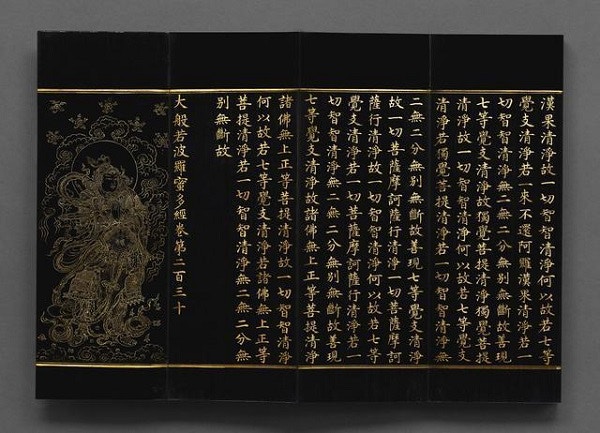 漢果清淨故一切智智清淨何以故若七等
覺支清淨若一來不還阿羅漢果清淨若一
切智智清淨無二無二分無別無斷故善現
七等覺支清淨故獨覺菩提清淨獨覺菩提
清淨故一切智智清淨何以故若七等覺支
清淨若獨覺菩提清淨若一切智智清淨無
二無二分無別無斷故善現七等覺支清淨
故一切菩薩摩訶薩行清淨一切菩薩摩訶
薩行清淨故一切智智清淨何以故若七等
覺支清淨若一切菩薩摩訶薩行清淨若一
切智智清淨無二無二分無別無斷故善現
七等覺支清淨故諸佛無上正等菩提清淨
諸佛無上正等菩提清淨故一切智智清淨
何以故若七等覺支清淨若諸佛無上正等
菩提清淨若一切智智清淨無二無二分無
別無斷故
大般若波羅蜜多經卷第二百三十